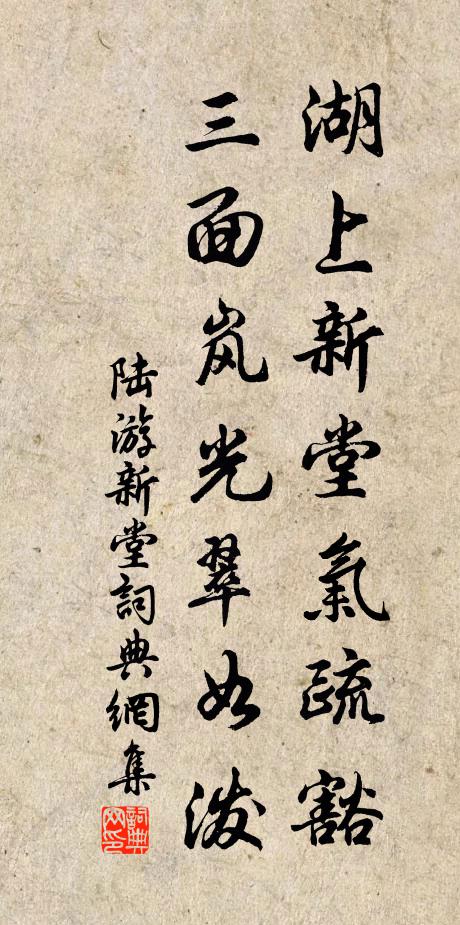 湖上新堂氣疏豁
三面岚光翠如泼
陆游新堂詞典網集
詞典网印